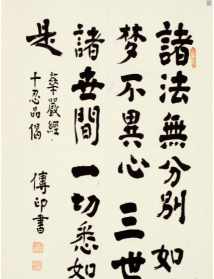 諸法無分別如
梦不異心三世
諸世間一切悉如
是
華嚴經
十忍品偈
傳印書